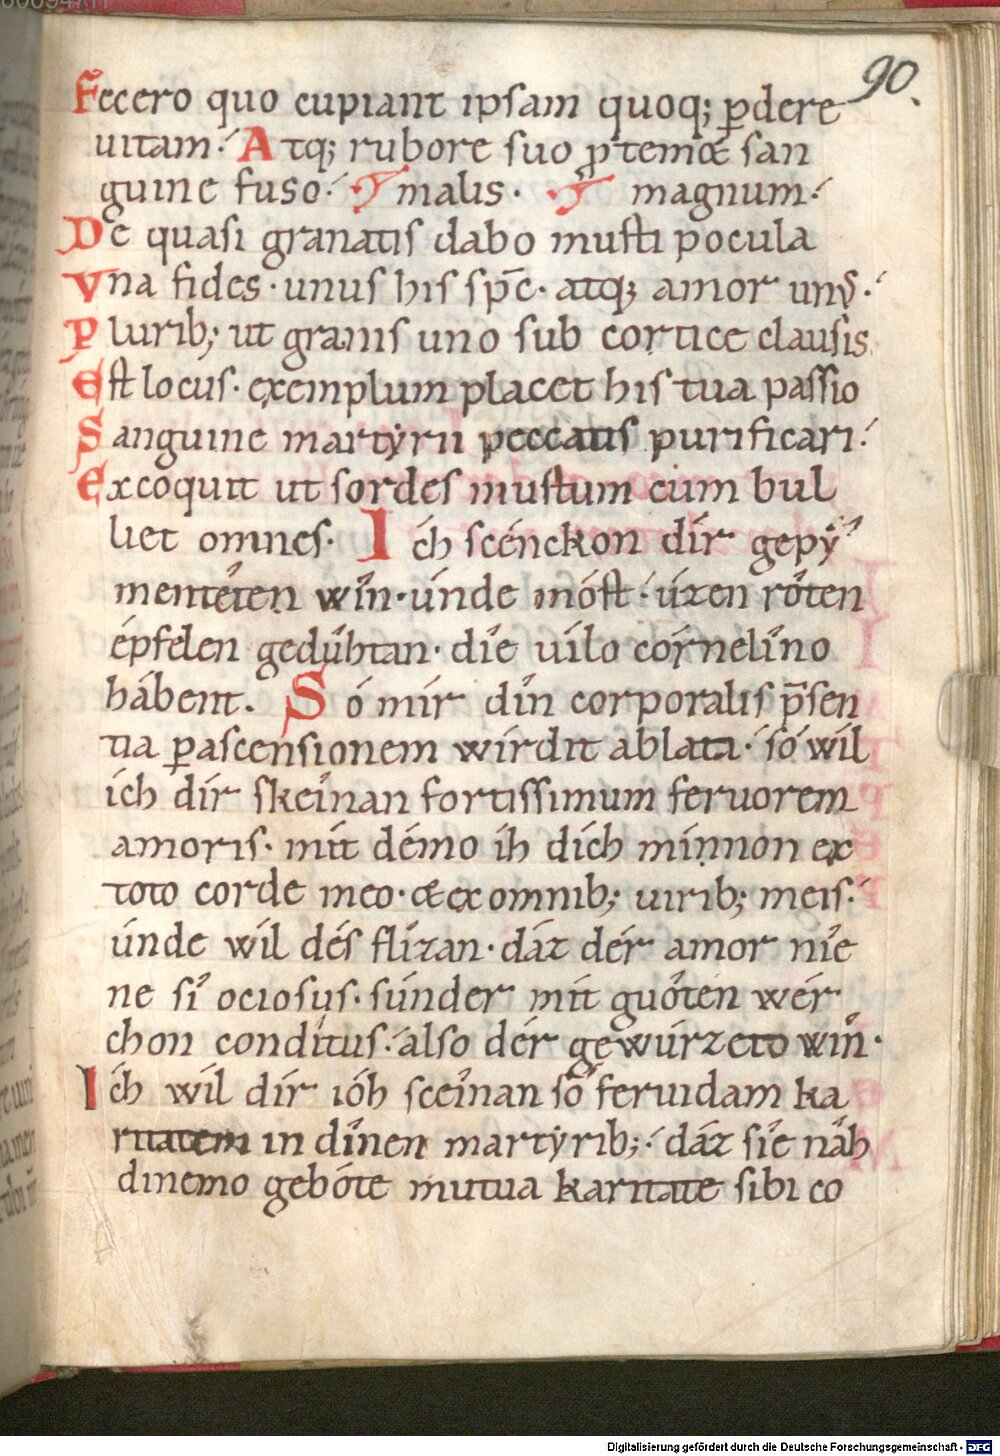 90.
Fecero quo cupiant ipsam quoq; p̱dere
uitam. Atq; rubore suo p̱ temæ san
guine fuso. malis. magnum.
De quasi granatis dabo musti pocula
Vna fides. unus his sp̄c. atq; amor unꝰ.
Plurib; ut granis uno sub cortice clausis
Est locus. exemplum placet his tua passio
Sanguine martyrii peccatis purificari.
Excoquit ut sordes mustum cum bul
liet omnes. Ich scénckon dír gepẏ
mentéten wîn. únde móst. úzen rôten
épfelen gedûhtan. díe uílo córnelîno
hábent. Só mír dîn corporalis p̄sen
tia p̱ ascensionem wírdit ablata. só wíl
ich dír skeînan fortissimum feruorem
amoris. mít démo ih dích mínnon ex
toto corde meo. & ex omnib; uirib; meis.
únde wíl dés flízan. dáz dér amor níe
ne sî ociosus. súnder mít guôten wér
chon condítus. álso dér gewúrzeto wîn.
Ích wíl dír ióh sceînan sô feruidam ka
ritatem in dînen martyrib;. dáz síe nâh
dinemo gebóte mutua karitate sibi co
Digitalisierung gefördert durch die Deutsche Forschungsgemeinschaft - DFG